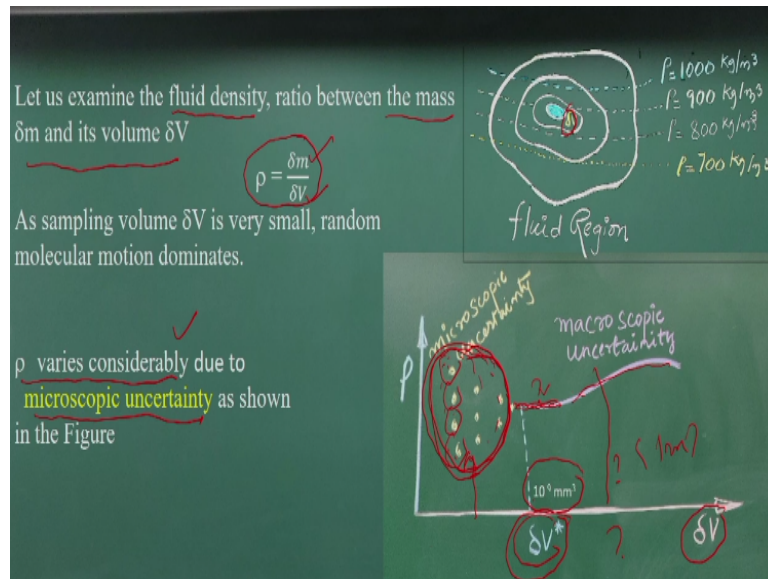 Let us examine the fluid density, ratio between the mass
δm and its volume δV
ρ = δm/δV
As sampling volume δV is very small, random
molecular motion dominates.
ρ varies considerably due to
microscopic uncertainty as shown
in the Figure
ρ=1000 Kg/m³
ρ= 900 Kg/m³
ρ= 800 Kg/m³
ρ=700 Kg/m³
fluid Region
microscopic
uncertainty
macroscopic
uncertainity
ρ
?
?
δV*
δV